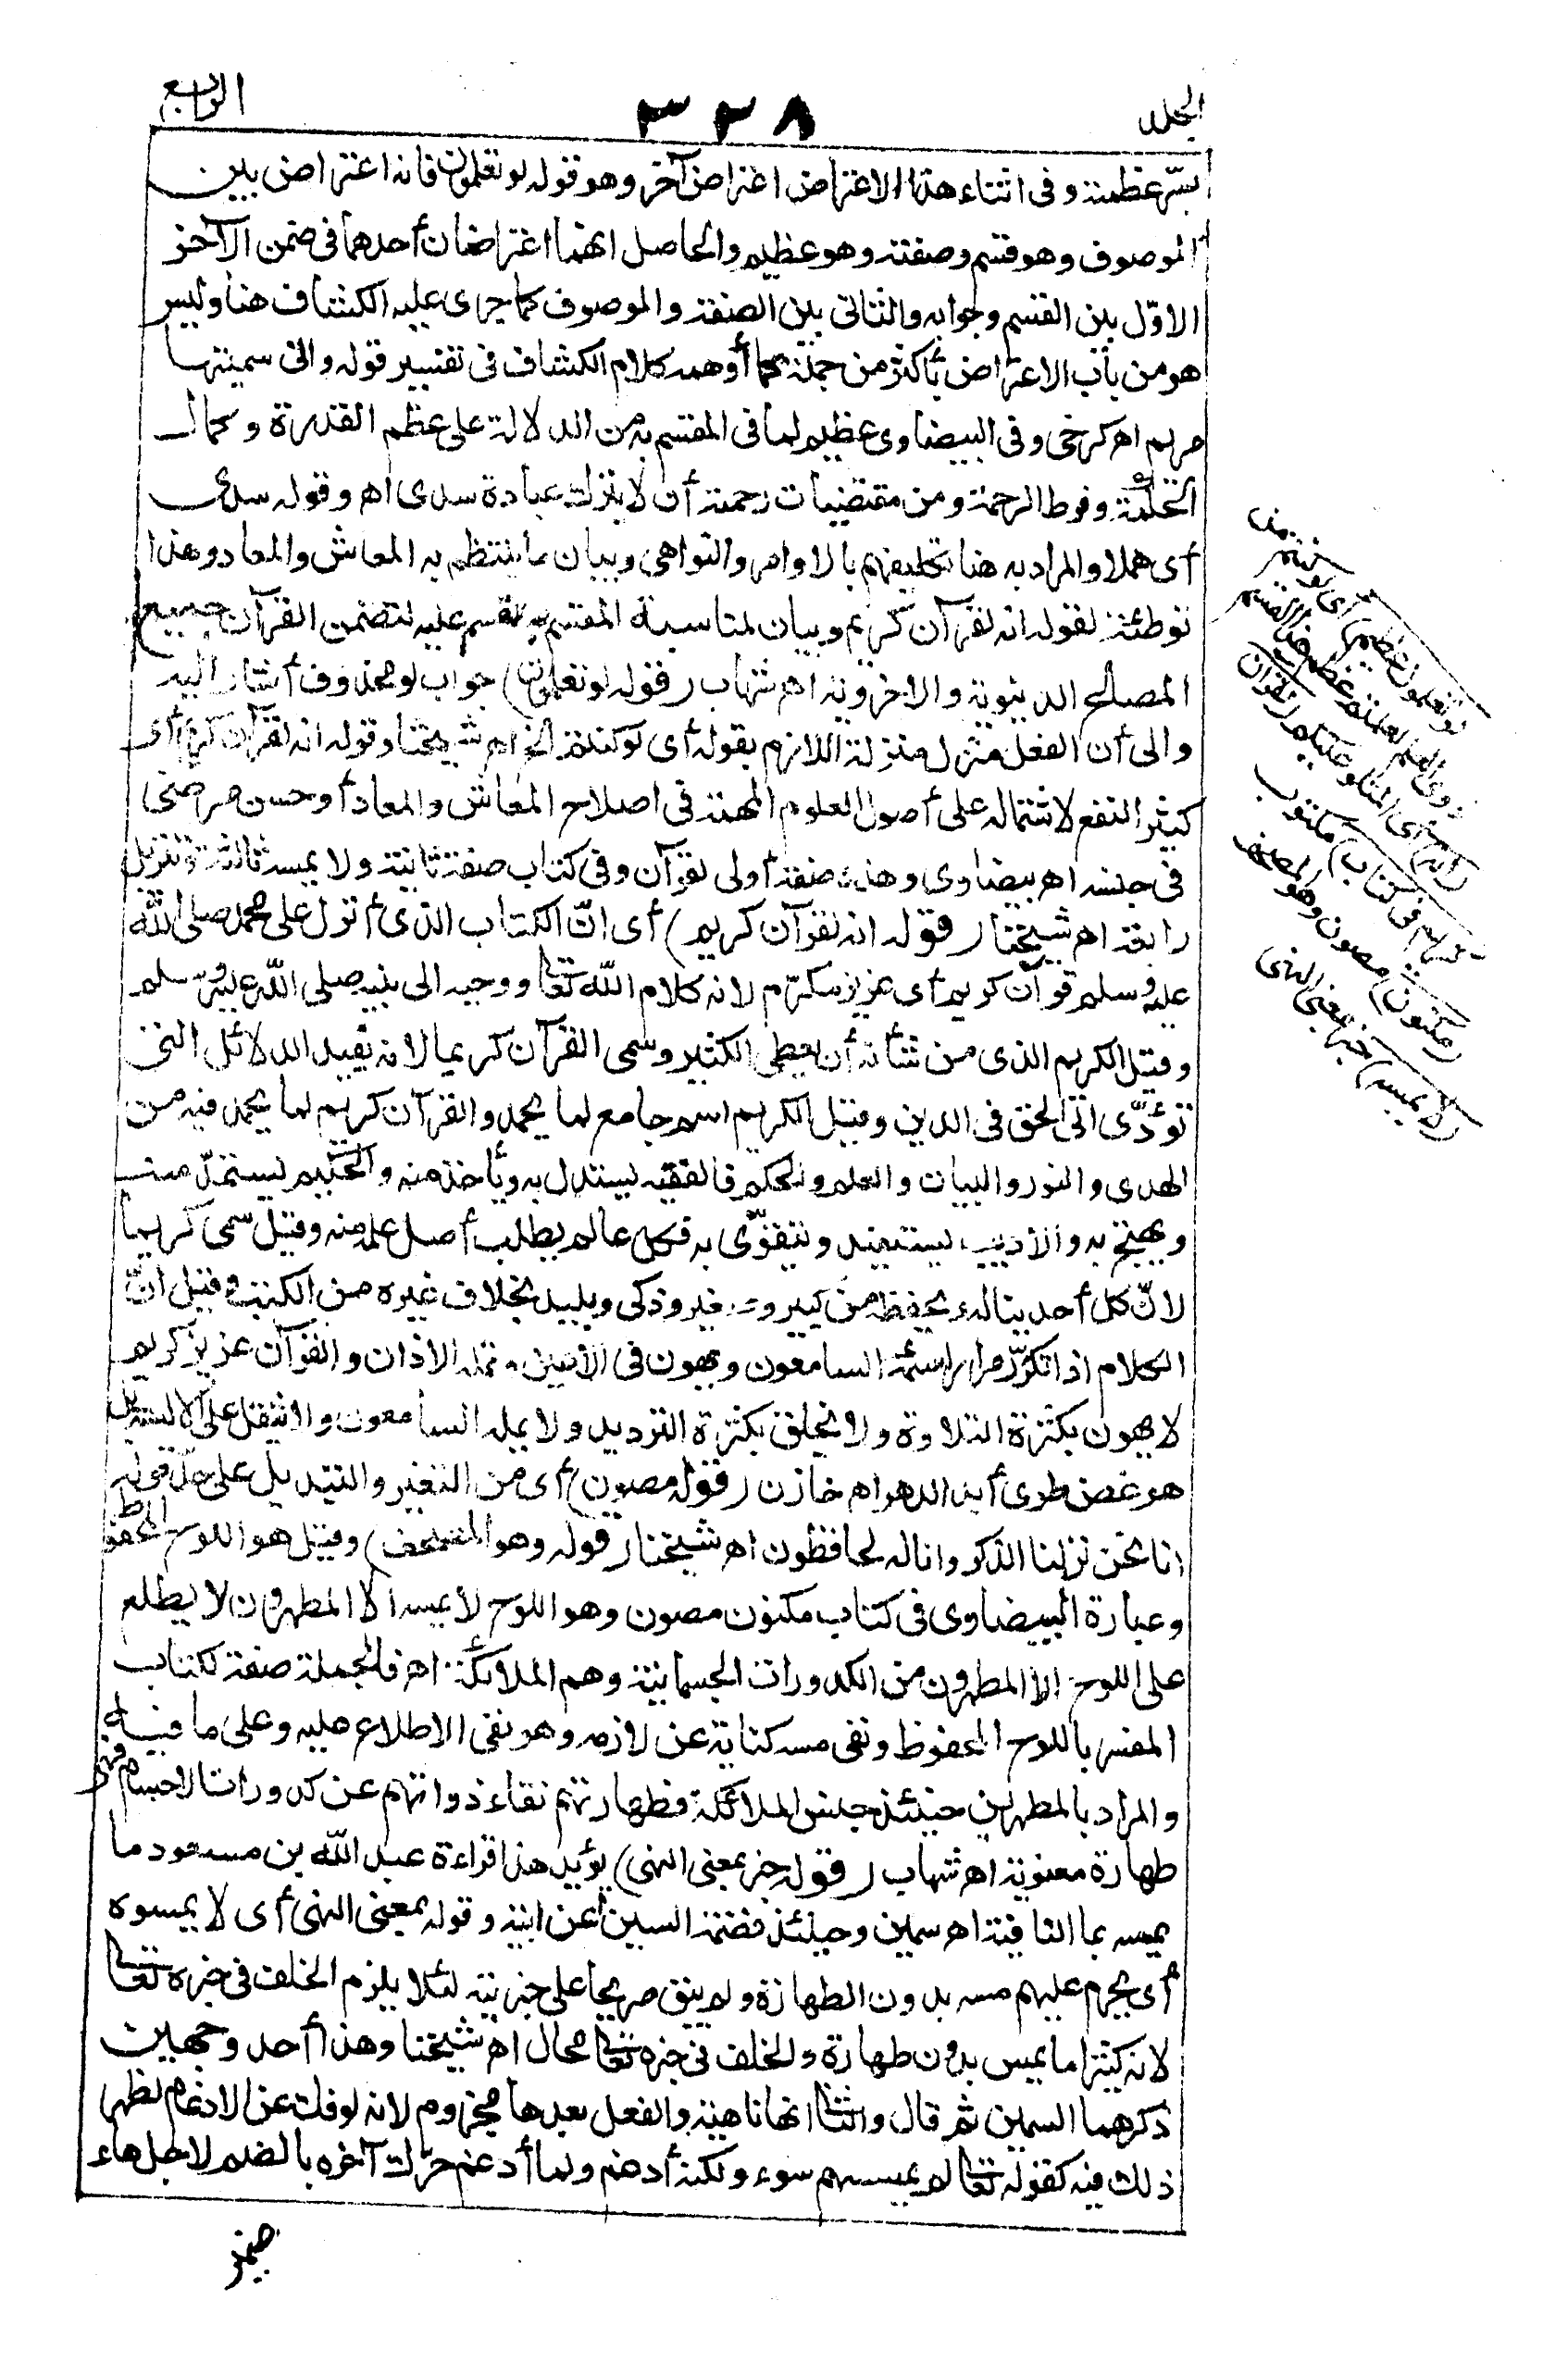 الجلد
٣٢٨
الرابع
بشر عظمته وفى اثناء هذا الاعتراض اعتراض آخر وهو قوله لو تعلمون فانه اعتراض بين
الموصوف وهو قسم وصفته وهو عظيم والحاصل انهما اعتراضان أحدهما فى ضمن الآخر
الاوّل بين القسم وجوابه والثانى بين الصفة والموصوف كما جرى عليه الكشاف هنا وليس
هو من باب الاعتراض بأكثر من جملة كما أوهمه كلام الكشاف فى تفسير قوله وانى سميتها
مريم اه كرخى وفى البيضاوى عظيم لما فى المقسم به من الدلالة على عظم القدرة وكمال
الحكمة وفرط الرحمة ومن مقتضيات رحمته أن لا يترك عباده سدى اه وقوله سدى
أى هملا والمراد به هنا تكليفهم بالاوامر والنواهى وبيان ما ينتظم به المعاش والمعاد وهذا
توطئة لقوله انه لقرآن كريم وبيان لمناسبة المقسم به للمقسم عليه لتضمن القرآن جميع
المصالح الدنيوية والاخروية اه شهاب (قوله لو تعلمون) جواب لو محذوف أشار اليه
والى أن الفعل منزل منزلة اللازم بقوله أى لو كنتم الخ اه شيخنا وقوله انه لقرآن كريم أى
كثير النفع لاشتماله على أصول العلوم المهمة فى اصلاح المعاش والمعاد أو حسن مرضى
فى جنسه اه بيضاوى وهذه صفة أولى لقرآن وفى كتاب صفة ثانية ولا يمسه ثالثة وتنزيل
رابعة اه شيخنا (قوله انه لقرآن كريم) أى انّ الكتاب الذى أنزل على محمد صلى الله
عليه وسلم قرآن كريم أى عزيز مكرّم لانه كلام الله تعالى ووحيه الى نبيه صلى الله عليه وسلم
وقيل الكريم الذى من شأنه أن يعطى الكثير وسمى القرآن كريما لانه يفيد الدلائل التى
تؤدّى الى الحق فى الدين وقيل الكريم اسم جامع لما يحمد والقرآن كريم لما يحمد فيه من
الهدى والنور والبيان والعلم والحكم فالفقيه يستدل به ويأخذ منه والحكيم يستمدّ منه
ويحتج به والاديب يستفيد ويتقوّى به فكل عالم يطلب أصل علمه منه وقيل سمى كريما
لانّ كل أحد يناله ويحفظه من كبير وصغير وذكى وبليد بخلاف غيره من الكتب وقيل انّ
الكلام اذا تكرّر مرارا سئمه السامعون ويهون فى الاعين وتمله الاذان والقرآن عزيز كريم
لا يهون بكثرة التلاوة ولا يخلق بكثرة الترديد ولا يمله السامعون ولا يثقل على الالسنة بل
هو غض طرى أبد الدهر اه خازن (قوله مصون) أى من التغير والتبديل على حدّ قوله
انا نحن نزلنا الذكر وانا له لحافظون اه شيخنا (قوله وهو المصحف) وقيل هو اللوح المحفوظ
وعبارة البيضاوى فى كتاب مكنون مصون وهو اللوح لا يمسه الا المطهرون لا يطلع
على اللوح الا المطهرون من الكدورات الجسمانية وهم الملائكة اه فالجملة صفة لكتاب
المفسر باللوح المحفوظ ونفى مسه كناية عن لازمه وهو نفى الاطلاع عليه وعلى ما فيه
والمراد بالمطهرين حينئذ جنس الملائكة فطهارتهم نقاء ذواتهم عن كدورات الاجسام فهى
طهارة معنوية اه شهاب (قوله خبر بمعنى النهى) يؤيد هذا قراءة عبد الله بن مسعود ما
يمسه بما النافية اه سمين وحينئذ فضمة السين اعرابية وقوله بمعنى النهى أى لا يمسوه
أى يحرم عليهم مسه بدون الطهارة ولم يبق صريحا على خبريته لئلا يلزم الخلف فى خبره تعالى
لانه كثيرا ما يمس بدون طهارة والخلف فى خبره تعالى محال اه شيخنا وهذا أحد وجهين
ذكرهما السمين ثم قال والثانى انها ناهية والفعل بعدها مجزوم لانه لو فك عن الادغام لظهر
ذلك فيه كقوله تعالى لم يمسسهم سوء ولكنه أدغم ولما أدغم حرّك آخره بالضم لاجل هاء
ضمير
لو تعلمون عظيم) أى لو كنتم من
ذوى العلم لعلمتم عظم هذا القسم
(انه) أى المتلو عليكم (لقرآن
كريم فى كتاب) مكتوب
(مكنون) مصون وهو المصحف
(لا يمسه) خبر بمعنى النهى